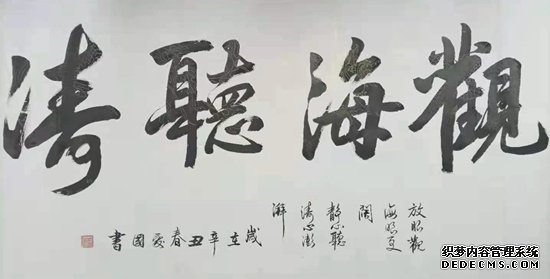 觀海聽涛
放眼觀
海眼更
闊
靜心聽
涛心澎
湃
歲在辛丑春爱國書
织梦内容管理系统
DEDECMS.COM